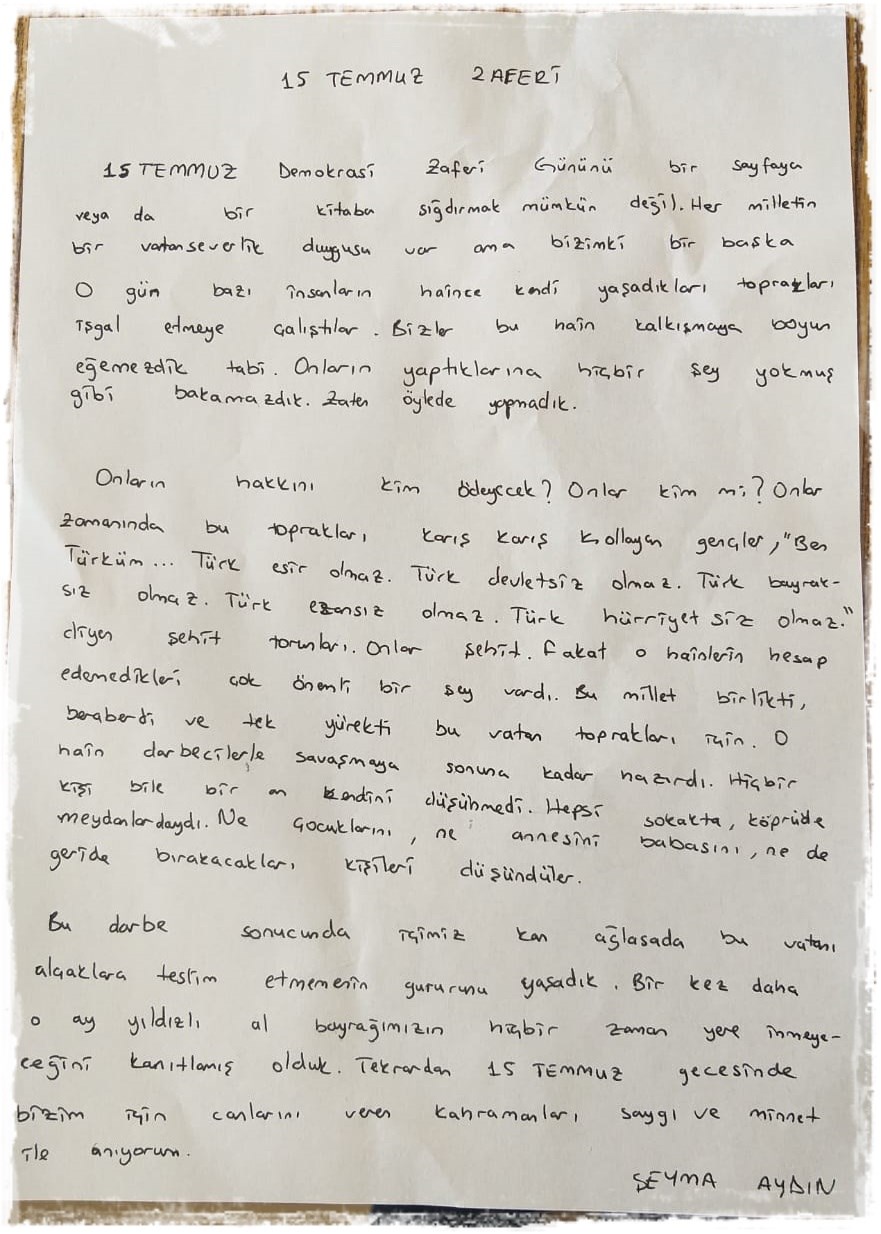 15 TEMMUZ ZAFERİ
15 TEMMUZ Demokrasi Zaferi Gününü bir sayfaya
veya da bir kitaba sığdırmak mümkün değil. Her milletin
bir vatanseverlik duygusu var ama bizimki bir başka
O gün bazı insanların haince kendi yaşadıkları toprakları
işgal etmeye çalıştılar. Bizler bu hain kalkışmaya boyun
eğemezdik tabi. Onların yaptıklarına hiçbir şey yokmuş
gibi bakamazdık. Zaten öylede yapmadık.
Onların hakkını kim ödeyecek? Onlar kim mi? Onlar
zamanında bu toprakları karış karış kollayan gençler, "Ben
Türküm... Türk esir olmaz. Türk devletsiz olmaz. Türk bayrak-
sız olmaz. Türk ezansız olmaz. Türk hürriyet siz olmaz."
diyen şehit torunları. Onlar şehit. Fakat o hainlerin hesap
edemedikleri çok önemli bir şey vardı. Bu millet birlikti,
beraberdi ve tek yürekti bu vatan toprakları için. O
hain darbecilerle savaşmaya sonuna kadar hazırdı. Hiçbir
kişi bile bir an kendini düşünmedi. Hepsi sokakta, köprüde
meydanlardaydı. Ne çocuklarını, ne annesini babasını, ne de
geride bırakacakları kişileri düşündüler.
Bu darbe sonucunda içimiz kan ağlasada bu vatanı
alçaklara teslim etmemenin gururunu yaşadık. Bir kez daha
o ay yıldızlı al bayrağımızın hiçbir zaman yere inmeye-
ceğini kanıtlamış olduk. Tekrardan 15 TEMMUZ gecesinde
bizim için canlarını veren kahramanları saygı ve minnet
ile anıyorum.
ŞEYMA AYDIN